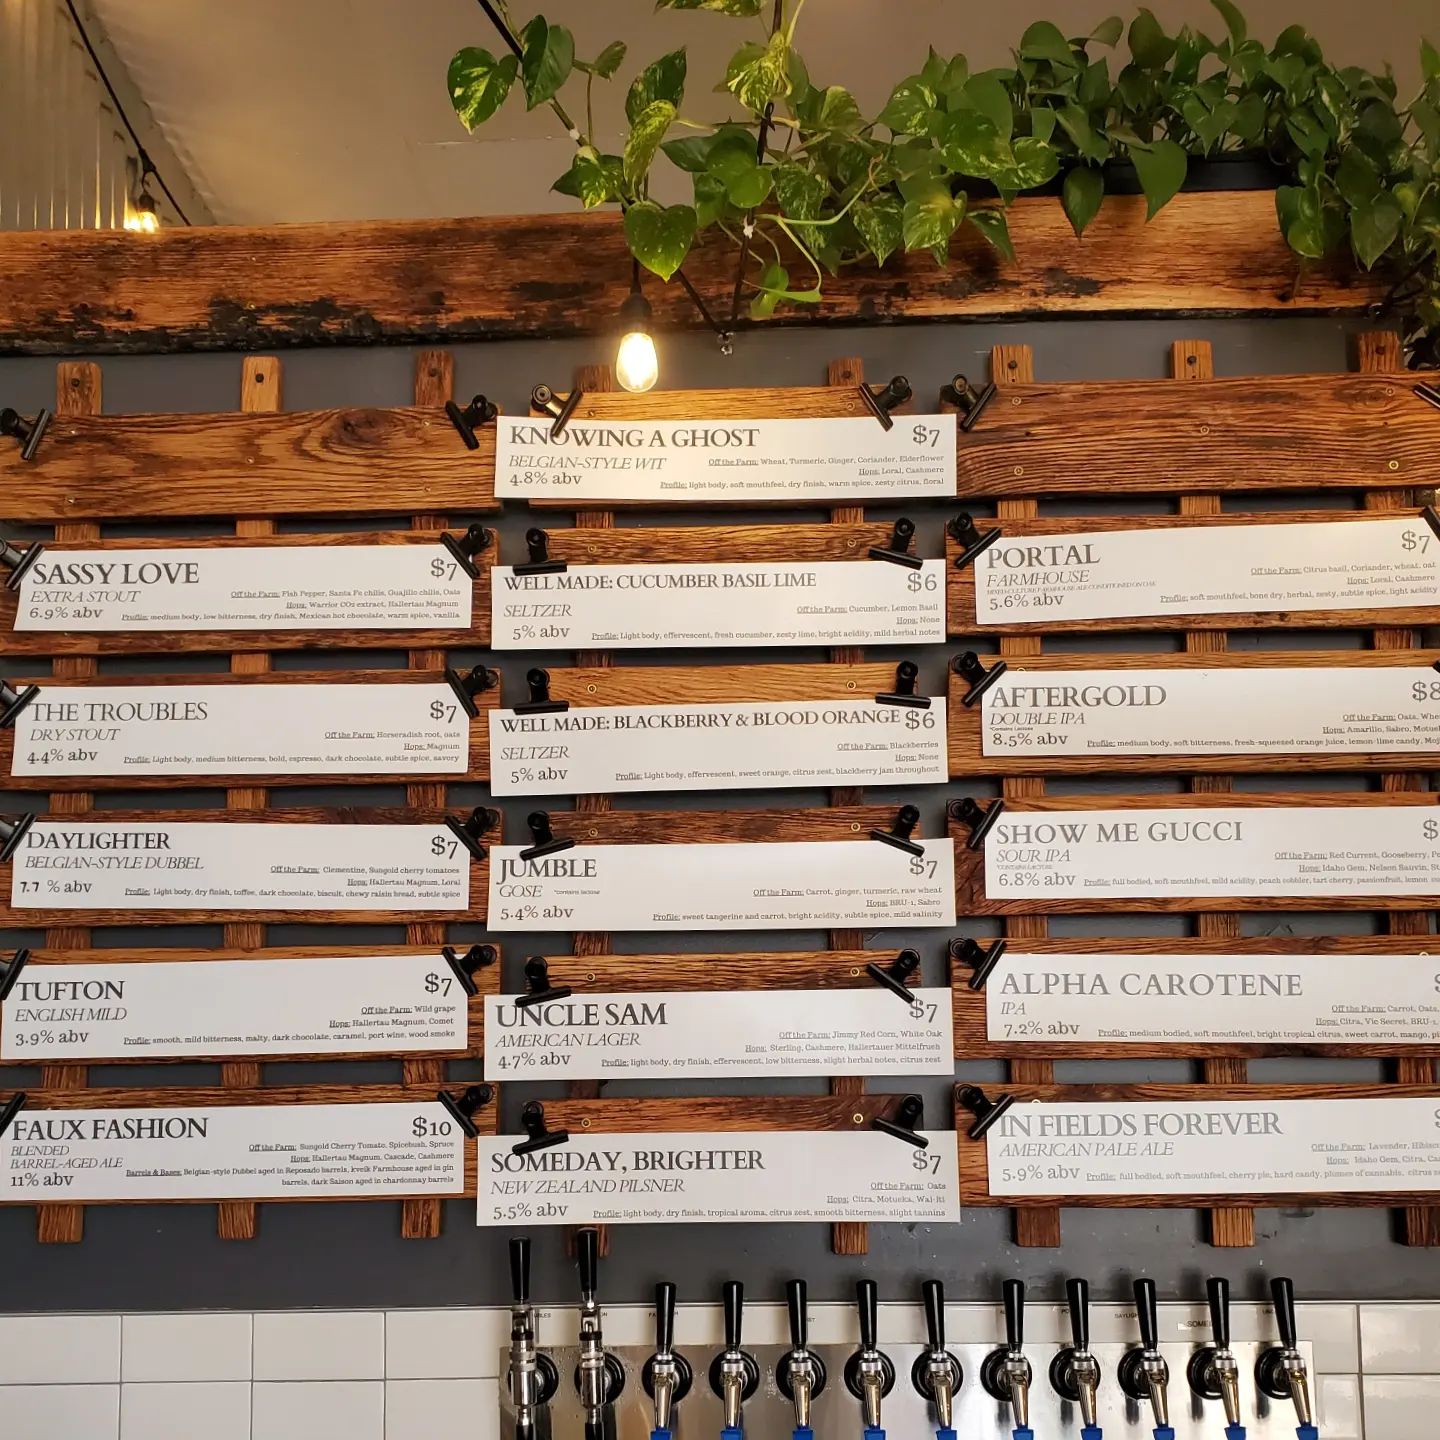 KNOWING A GHOST $7
BELGIAN-STYLE WIT
4.8% abv
Off the Farm: Wheat, Turmeric, Ginger, Coriander, Elderflower
Hops: Loral, Cashmere
Profile: light body, soft mouthfeel, dry finish, warm spice, zesty citrus, floral
SASSY LOVE $7
EXTRA STOUT
6.9% abv
Off the Farm: Fish Pepper, Santa Fe chilis, Guajillo chilis, Oats
Hops: Warrior CO2 extract, Hallertau Magnum
Profile: medium body, low bitterness, dry finish, Mexican hot chocolate, warm spice, vanilla
THE TROUBLES $7
DRY STOUT
4.4% abv
Off the Farm: Horseradish root, oats
Hops: Magnum
Profile: Light body, medium bitterness, bold, espresso, dark chocolate, subtle spice, savory
DAYLIGHTER $7
BELGIAN-STYLE DUBBEL
7.7 % abv
Off the Farm: Clementine, Sungold cherry tomatoes
Hops: Hallertau Magnum, Loral
Profile: Light body, dry finish, toffee, dark chocolate, biscuit, chewy raisin bread, subtle spice
TUFTON $7
ENGLISH MILD
3.9% abv
Off the Farm: Wild grape
Hops: Hallertau Magnum, Comet
Profile: smooth, mild bitterness, malty, dark chocolate, caramel, port wine, wood smoke
FAUX FASHION $10
BLENDED
BARREL-AGED ALE
11% abv
Off the Farm: Sungold Cherry Tomato, Spicebush, Spruce
Hops: Hallertau Magnum, Cascade, Cashmere
Barrels & Bases: Belgian-style Dubbel aged in Reposado barrels, kveik Farmhouse aged in gin
barrels, dark Saison aged in chardonnay barrels
WELL MADE: CUCUMBER BASIL LIME $6
SELTZER
5% abv
Off the Farm: Cucumber, Lemon Basil
Hops: None
Profile: Light body, effervescent, fresh cucumber, zesty lime, bright acidity, mild herbal notes
WELL MADE: BLACKBERRY & BLOOD ORANGE $6
SELTZER
5% abv
Off the Farm: Blackberries
Hops: None
Profile: Light body, effervescent, sweet orange, citrus zest, blackberry jam throughout
JUMBLE $7
GOSE *contains lactose
5.4% abv
Off the Farm: Carrot, ginger, turmeric, raw wheat
Hops: BRU-1, Sabro
Profile: sweet tangerine and carrot, bright acidity, subtle spice, mild salinity
UNCLE SAM $7
AMERICAN LAGER
4.7% abv
Off the Farm: Jimmy Red Corn, White Oak
Hops: Sterling, Cashmere, Hallertauer Mittelfrueh
Profile: light body, dry finish, effervescent, low bitterness, slight herbal notes, citrus zest
SOMEDAY, BRIGHTER $7
NEW ZEALAND PILSNER
5.5% abv
Off the Farm: Oats
Hops: Citra, Motueka, Wai-iti
Profile: light body, dry finish, tropical aroma, citrus zest, smooth bitterness, slight tannins
PORTAL $7
FARMHOUSE
MIXED-CULTURE FARMHOUSE ALE CONDITIONED ON OAK
5.6% abv
Off the Farm: Citrus basil, Coriander, wheat, oat
Hops: Loral, Cashmere
Profile: soft mouthfeel, bone dry, herbal, zesty, subtle spice, light acidity
AFTERGOLD $8
DOUBLE IPA
*Contains Lactose
8.5% abv
Off the Farm: Oats, Whe
Hops: Amarillo, Sabro, Motue
Profile: medium body, soft bitterness, fresh-squeezed orange juice, lemon-lime candy, Moj
SHOW ME GUCCI $
SOUR IPA
*CONTAINS LACTOSE
6.8% abv
Off the Farm: Red Current, Gooseberry, Pe
Hops: Idaho Gem, Nelson Sauvin,
Profile: full bodied, soft mouthfeel, mild acidity, peach cobbler, tart cherry, passionfruit, lemon
ALPHA CAROTENE
IPA
7.2% abv
Off the Farm: Carrot, Oats,
Hops: Citra, Vic Secret, BRU-1,
Profile: medium bodied, soft mouthfeel, bright tropical citrus, sweet carrot, mango,
IN FIELDS FOREVER
AMERICAN PALE ALE
5.9% abv
Off the Farm: Lavender, Hibisc
Hops: Idaho Gem, Citra,
Profile: full bodied, soft mouthfeel, cherry pie, hard candy, plumes of cannabis, citrus